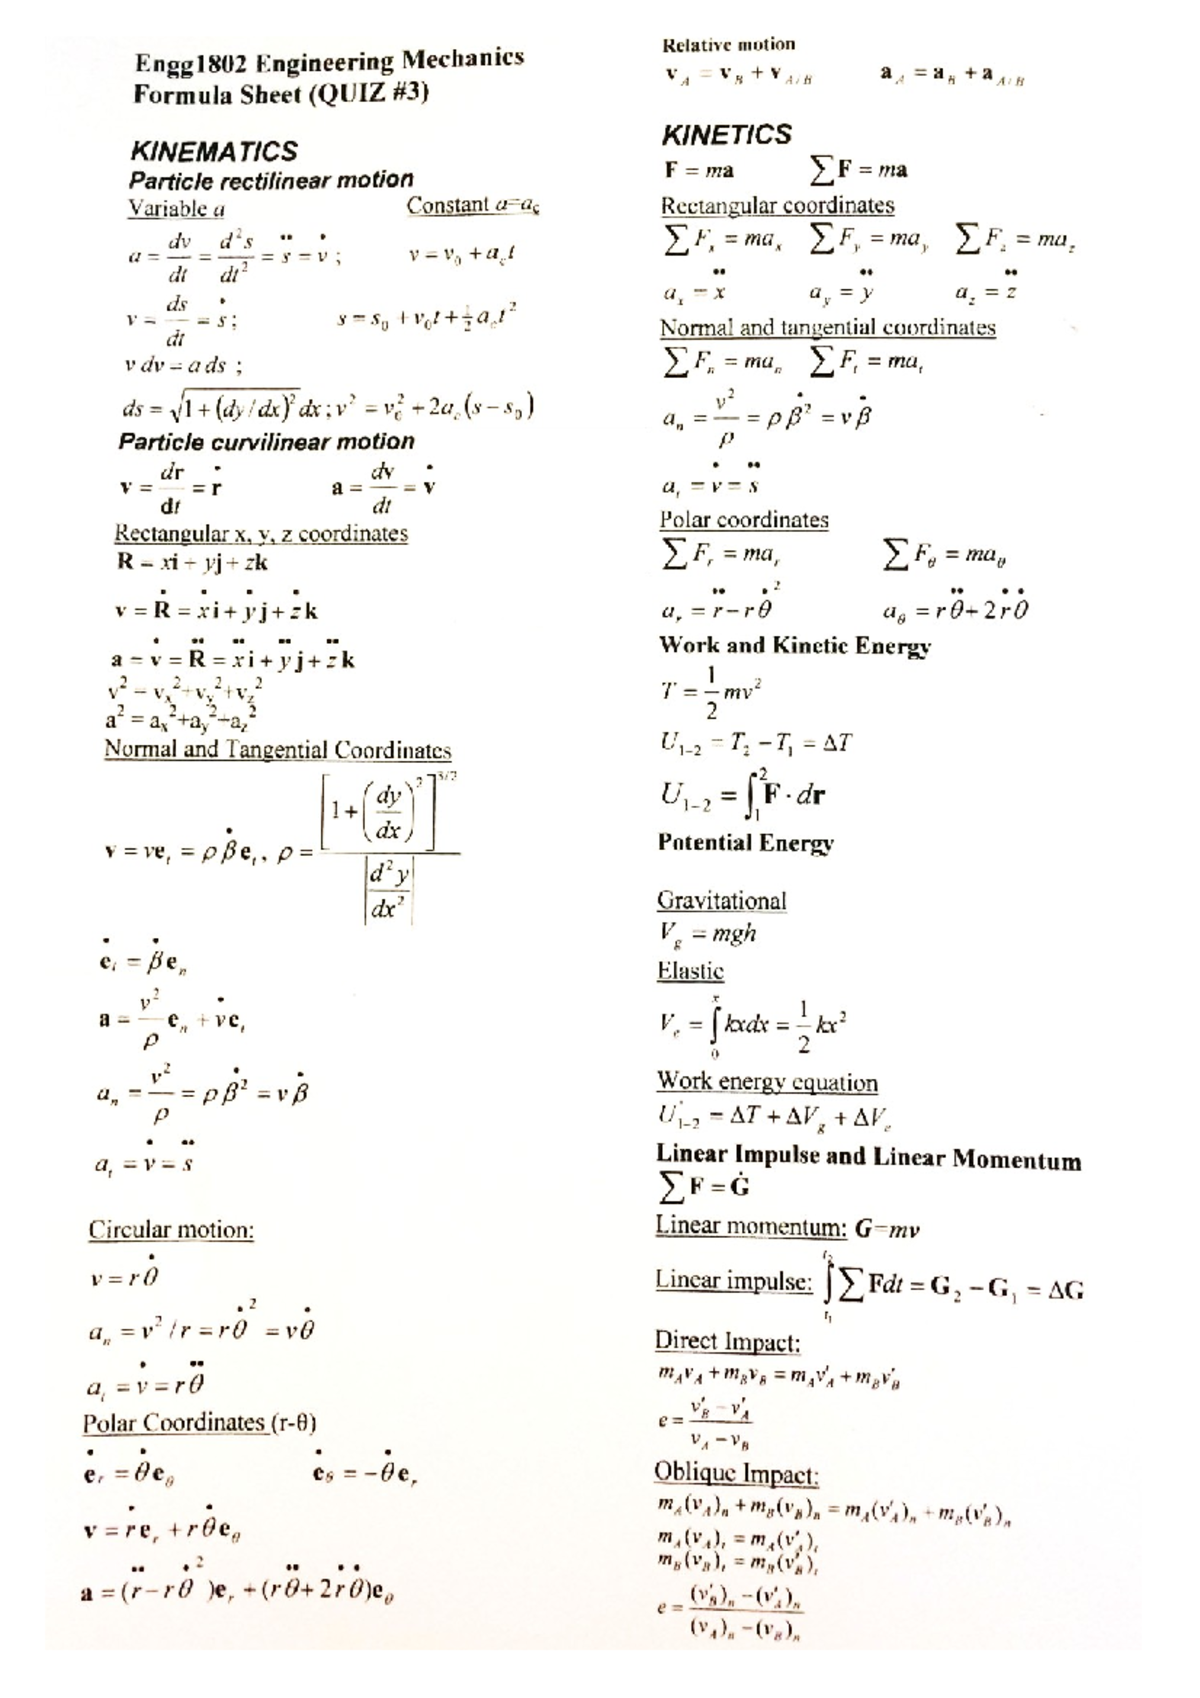 Engg1802 Engineering Mechanics
Formula Sheet (QUIZ #3)
KINEMATICS
Particle rectilinear motion
Variable a Constant a=a_c
a = dv/dt = d²s/dt² = s̈ = v̇ ; v = v₀ + a_c t
v = ds/dt = ṡ ; s = s₀ + v₀t + ½ a_c t²
v dv = a ds ;
ds = √(1 + (dy/dx)²) dx ; v² = v₀² + 2a_c (s − s₀)
Particle curvilinear motion
v = dr/dt = ṙ a = dv/dt = v̇
Rectangular x, y, z coordinates
R = xi + yj + zk
v = Ṙ = ẋi + ẏj + żk
a = v̇ = R̈ = ẍi + ÿj + z̈k
v² = v_x² + v_y² + v_z²
a² = a_x² + a_y² + a_z²
Normal and Tangential Coordinates
v = ve_t = ρβ̇e_t , ρ = [1 + (dy/dx)²]^{3/2} / |d²y/dx²|
ė_t = β̇e_n
a = v²/ρ e_n + v̇e_t
a_n = v²/ρ = ρβ̇² = vβ̇
a_t = v̇ = s̈
Circular motion:
v = rθ̇
a_n = v²/r = rθ̇² = vθ̇
a_t = v̇ = rθ̈
Polar Coordinates (r-θ)
ė_r = θ̇e_θ ė_θ = −θ̇e_r
v = ṙe_r + rθ̇e_θ
a = (r̈ − rθ̇²)e_r + (rθ̈ + 2ṙθ̇)e_θ
Relative motion
v_A = v_B + v_{A/B} a_A = a_B + a_{A/B}
KINETICS
F = ma ∑F = ma
Rectangular coordinates
∑F_x = ma_x ∑F_y = ma_y ∑F_z = ma_z
a_x = ẍ a_y = ÿ a_z = z̈
Normal and tangential coordinates
∑F_n = ma_n ∑F_t = ma_t
a_n = v²/ρ = ρβ̇² = vβ̇
a_t = v̇ = s̈
Polar coordinates
∑F_r = ma_r ∑F_θ = ma_θ
a_r = r̈ − rθ̇² a_θ = rθ̈ + 2ṙθ̇
Work and Kinetic Energy
T = 1/2 mv²
U_{1−2} = T₂ − T₁ = ΔT
U_{1−2} = ∫₁² F · dr
Potential Energy
Gravitational
V_g = mgh
Elastic
V_e = ∫₀ˣ kxdx = 1/2 kx²
Work energy equation
U'_{1−2} = ΔT + ΔV_g + ΔV_e
Linear Impulse and Linear Momentum
∑F = Ġ
Linear momentum: G=mv
Linear impulse: ∫_{t₁}^{t₂} ∑Fdt = G₂ − G₁ = ΔG
Direct Impact:
m_A v_A + m_B v_B = m_A v'_A + m_B v'_B
e = (v'_B − v'_A) / (v_A − v_B)
Oblique Impact:
m_A(v_A)_n + m_B(v_B)_n = m_A(v'_A)_n + m_B(v'_B)_n
m_A(v_A)_t = m_A(v'_A)_t
m_B(v_B)_t = m_B(v'_B)_t
e = ((v'_B)_n − (v'_A)_n) / ((v_A)_n − (v_B)_n)